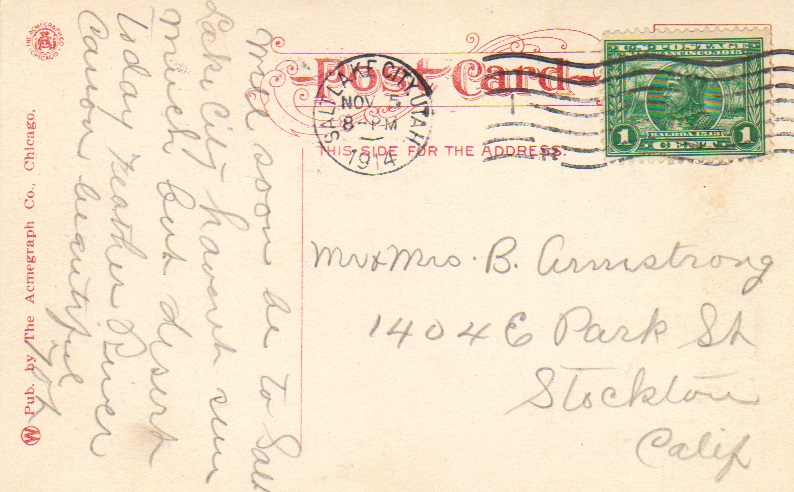 Post Card
THIS SIDE FOR THE ADDRESS.
SALT LAKE CITY, UTAH
NOV 5
8 - PM
1914
U.S. POSTAGE
SAN FRANCISCO, 1915
BALBOA 1513
1 CENT 1
Will soon be to Salt
Lake City havent seen
much but desert
Today Feather River
Canon beautiful
Mr & Mrs. B. Armstrong
1404 E Park St
Stockton
Calif
THE ACMEGRAPH CO.
CHICAGO
Pub. by The Acmegraph Co., Chicago.
W